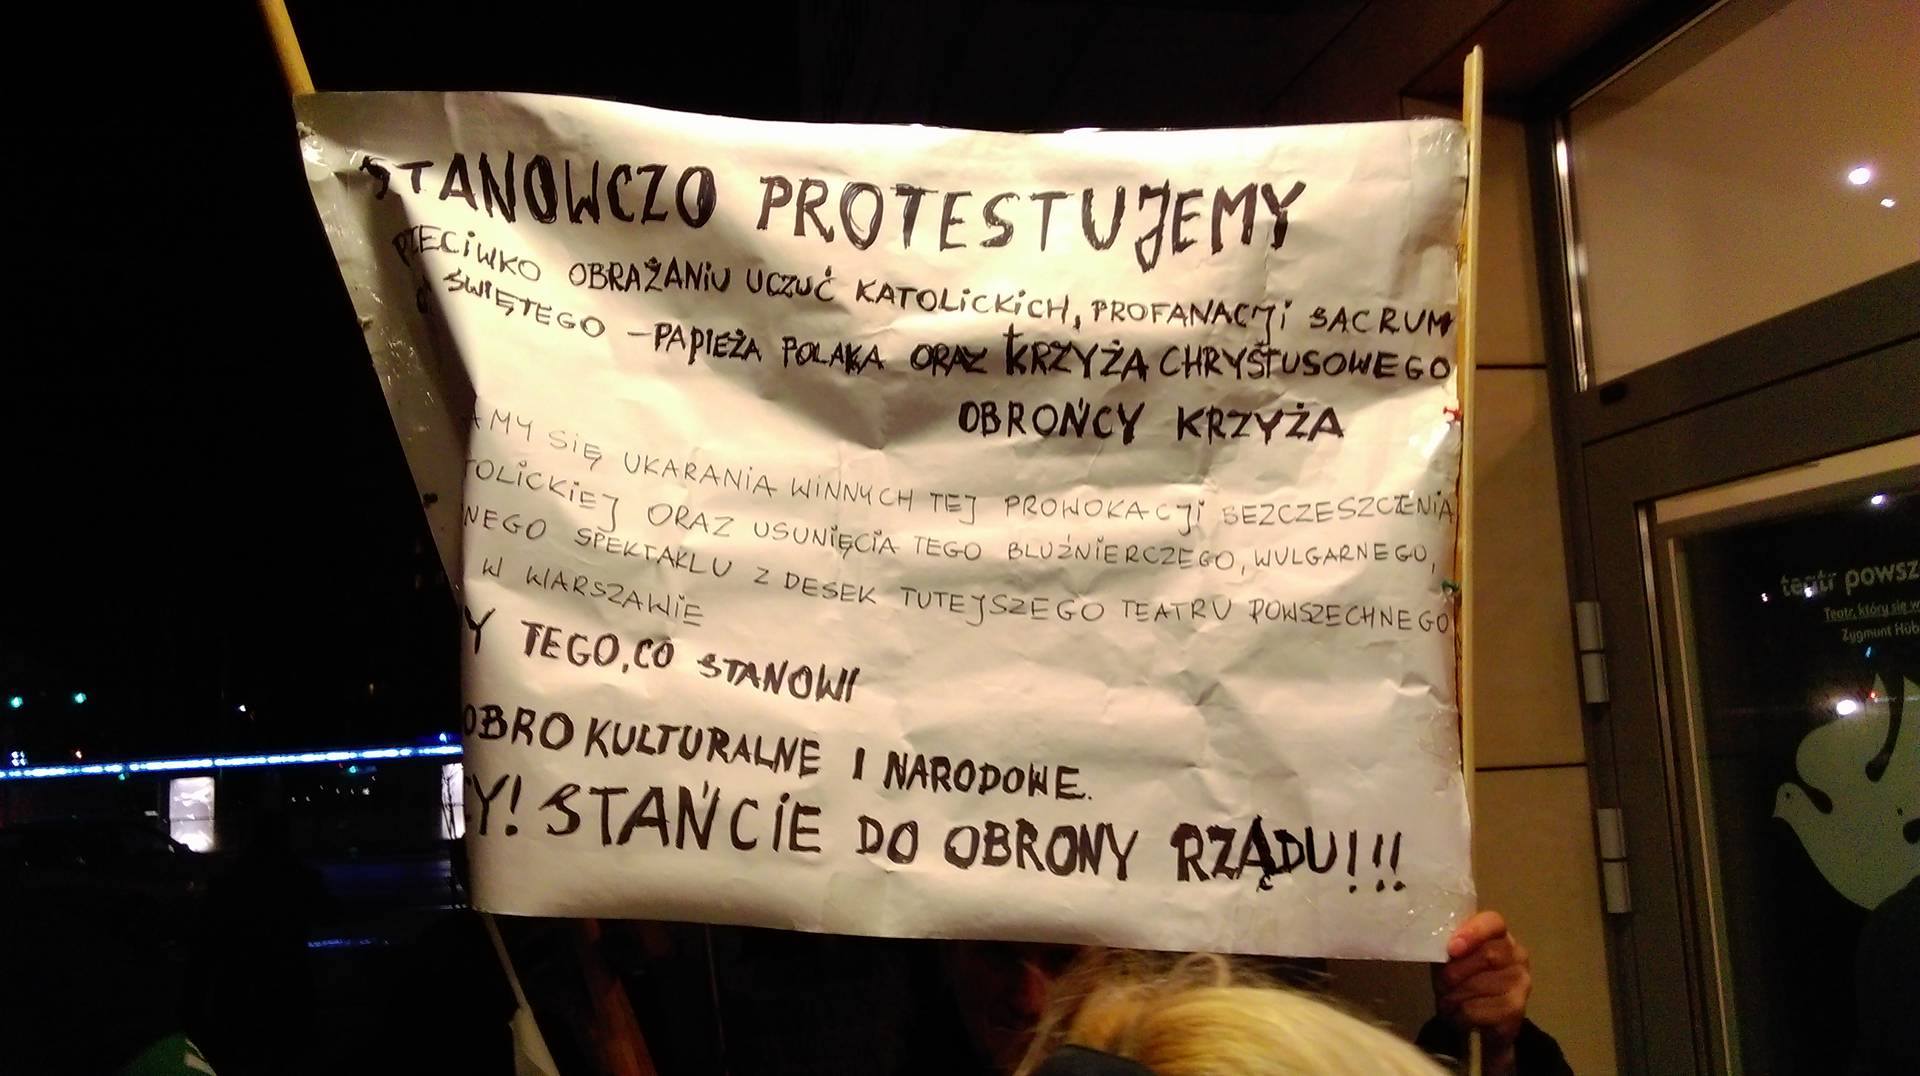 STANOWCZO PROTESTUJEMY
OBRAŻANIU UCZUĆ KATOLICKICH, PROFANACJI SACRUM
ŚWIĘTEGO – PAPIEŻA POLAKA ORAZ KRZYŻA CHRYSTUSOWEGO
OBROŃCY KRZYŻA
AMY SIĘ UKARANIA WINNYCH TEJ PROWOKACJI BEZCZESZCZENIA
TOLICKIEJ ORAZ USUNIĘCIA TEGO BLUŹNIERCZEGO, WULGARNEGO,
NEGO SPEKTAKLU Z DESEK TUTEJSZEGO TEATRU POWSZECHNEGO
W WARSZAWIE
Y TEGO, CO STANOWI
OBRO KULTURALNE I NARODOWE.
Y! STAŃCIE DO OBRONY RZĄDU!!!
teatr powsz
Teatr, który się w
Zygmunt Hüb